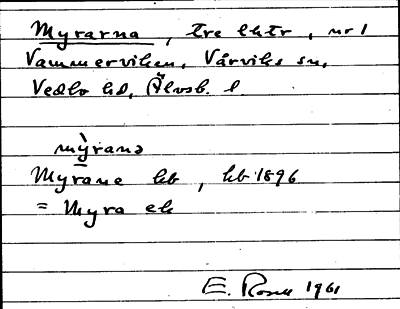 Myrarna, tre lhtr, nr 1
Vammerviken, Vårviks sn,
Vedbo hd, Älvsb. l.
mỳranə
Myrane hb, hb 1896
= Myra ek
E. Rosell 1961